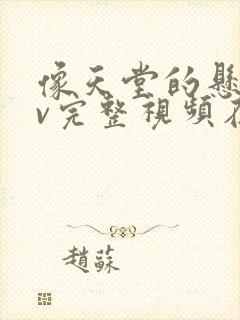 像天堂的懸
v完整視頻在
趙蘇